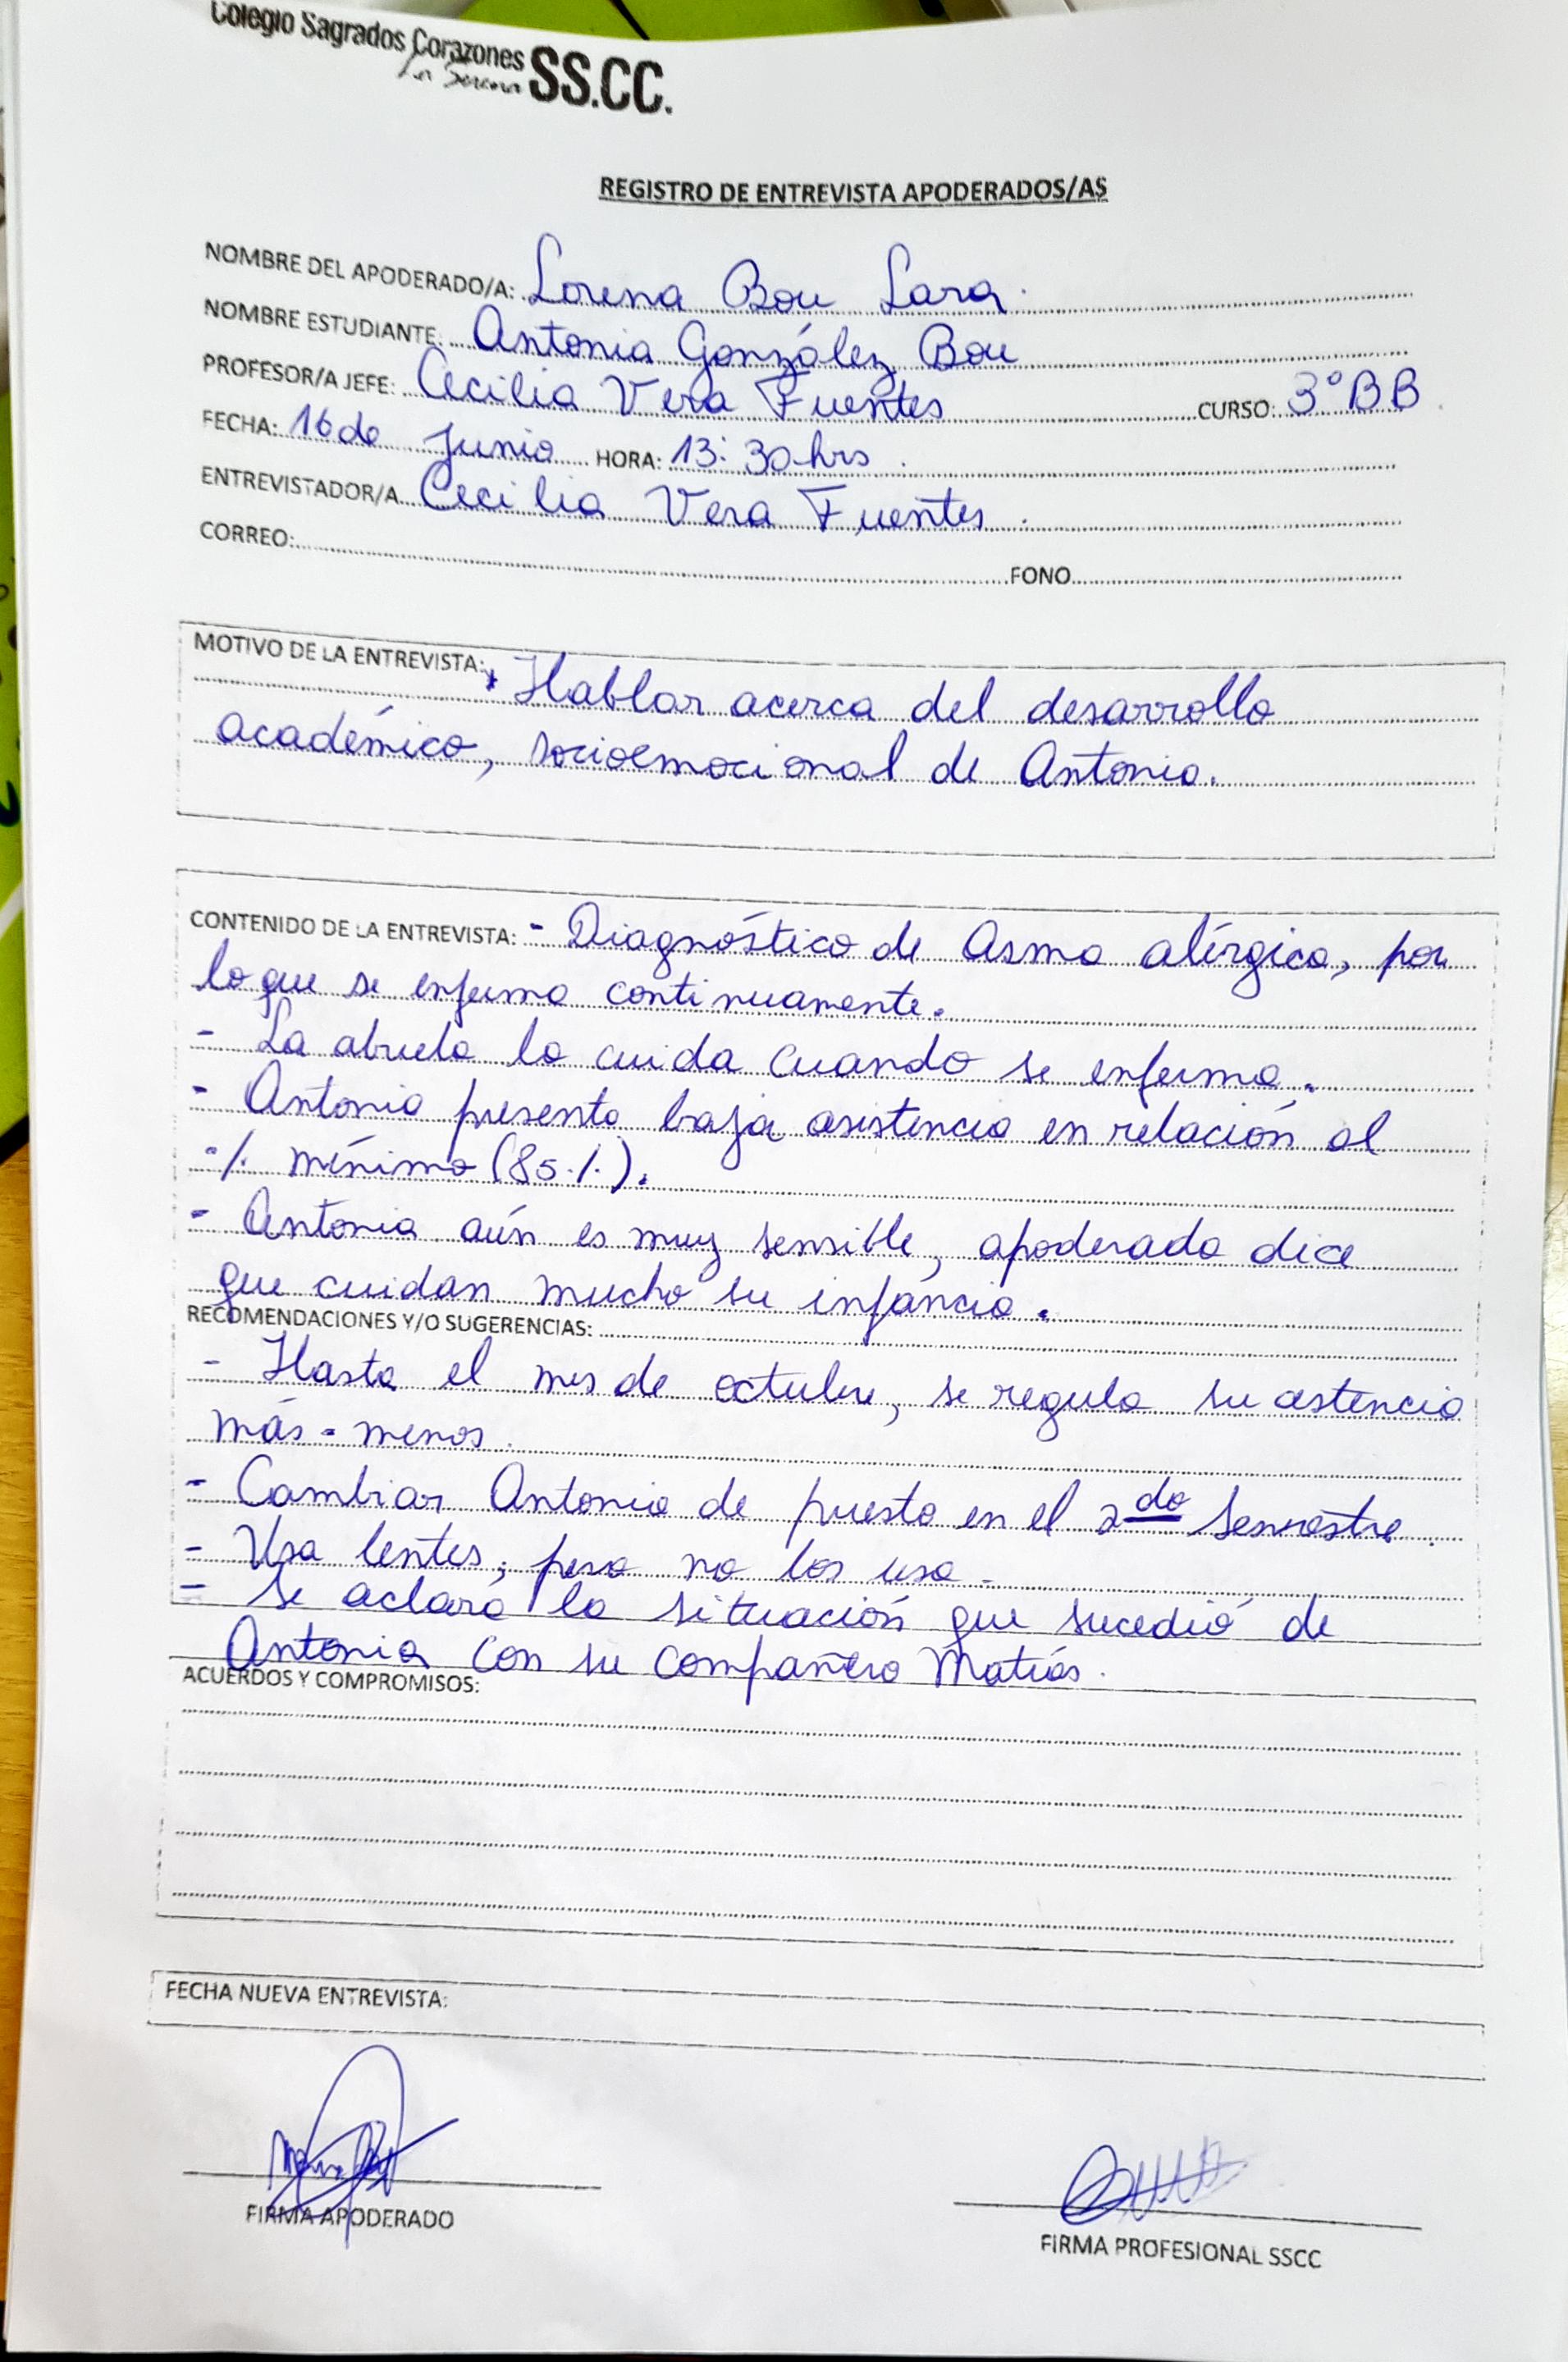 Colegio Sagrados Corazones
La Serena SS.CC.
REGISTRO DE ENTREVISTA APODERADOS/AS
NOMBRE DEL APODERADO/A: Lorena Bou Lara.
NOMBRE ESTUDIANTE: Antonia González Bou
PROFESOR/A JEFE: Cecilia Vera Fuentes CURSO: 3°BB
FECHA: 16 de junio HORA: 13:30 hrs.
ENTREVISTADOR/A Cecilia Vera Fuentes.
CORREO: FONO
MOTIVO DE LA ENTREVISTA: * Hablar acerca del desarrollo
académico, socioemocional de Antonia.
CONTENIDO DE LA ENTREVISTA: - Diagnóstico de Asma alérgica, por
lo que se enferma continuamente.
- La abuela la cuida cuando se enferma.
- Antonia presenta baja asistencia en relación al
% mínimo (85%).
- Antonia aún es muy sensible, apoderada dice
que cuidan mucho su infancia.
RECOMENDACIONES Y/O SUGERENCIAS:
- Hasta el mes de octubre, se regula su astencia
más-menos.
- Cambiar Antonia de puesto en el 2do Semestre.
- Usa lentes, pero no los usa.
- Se aclaró la situación que sucedió de
Antonia con su compañero Matías.
ACUERDOS Y COMPROMISOS:
FECHA NUEVA ENTREVISTA:
FIRMA APODERADO
FIRMA PROFESIONAL SSCC